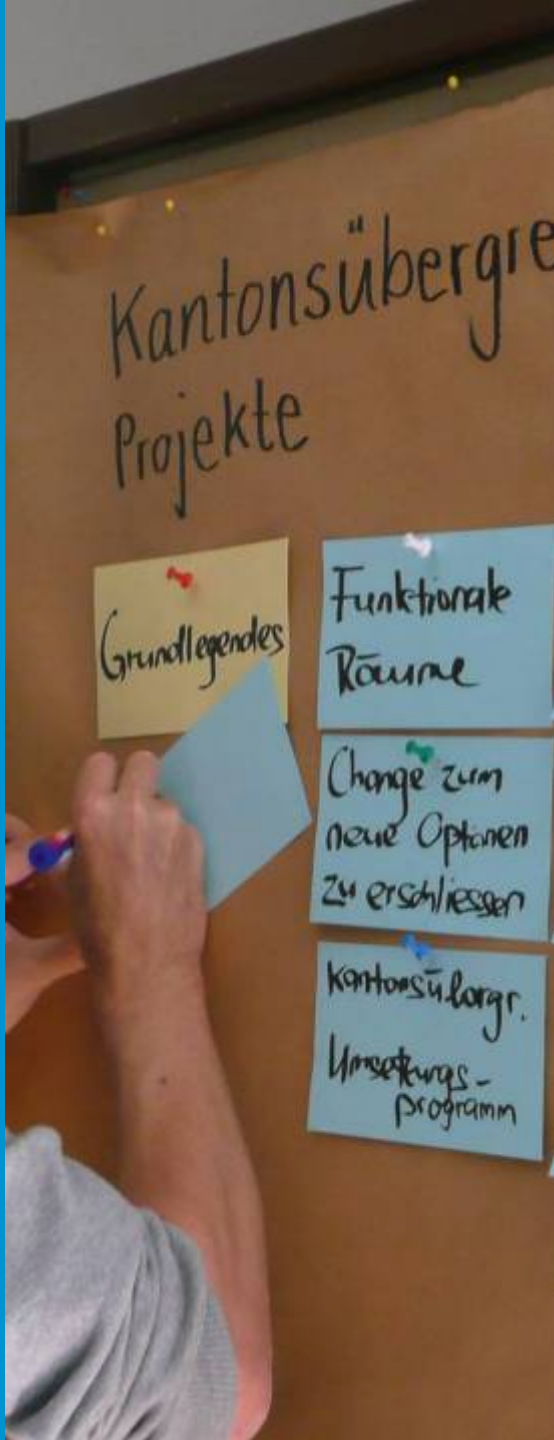 Kantonsübergre
Projekte
Grundlegendes
Funktionale
Räume
Change zum
neue Optionen
zu erschliessen
kantonsübergr.
Umsetzungs-
programm